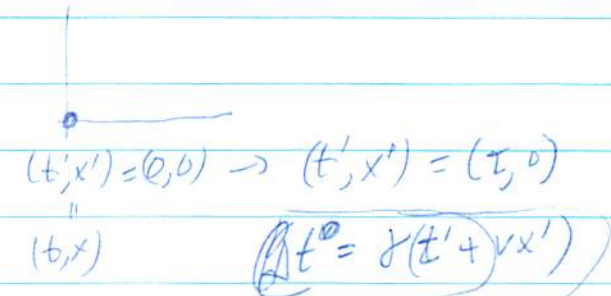 (t',x')=(0,0) → (t',x') = (τ,0)
"
(t,x)
t = γ(t' + vx')